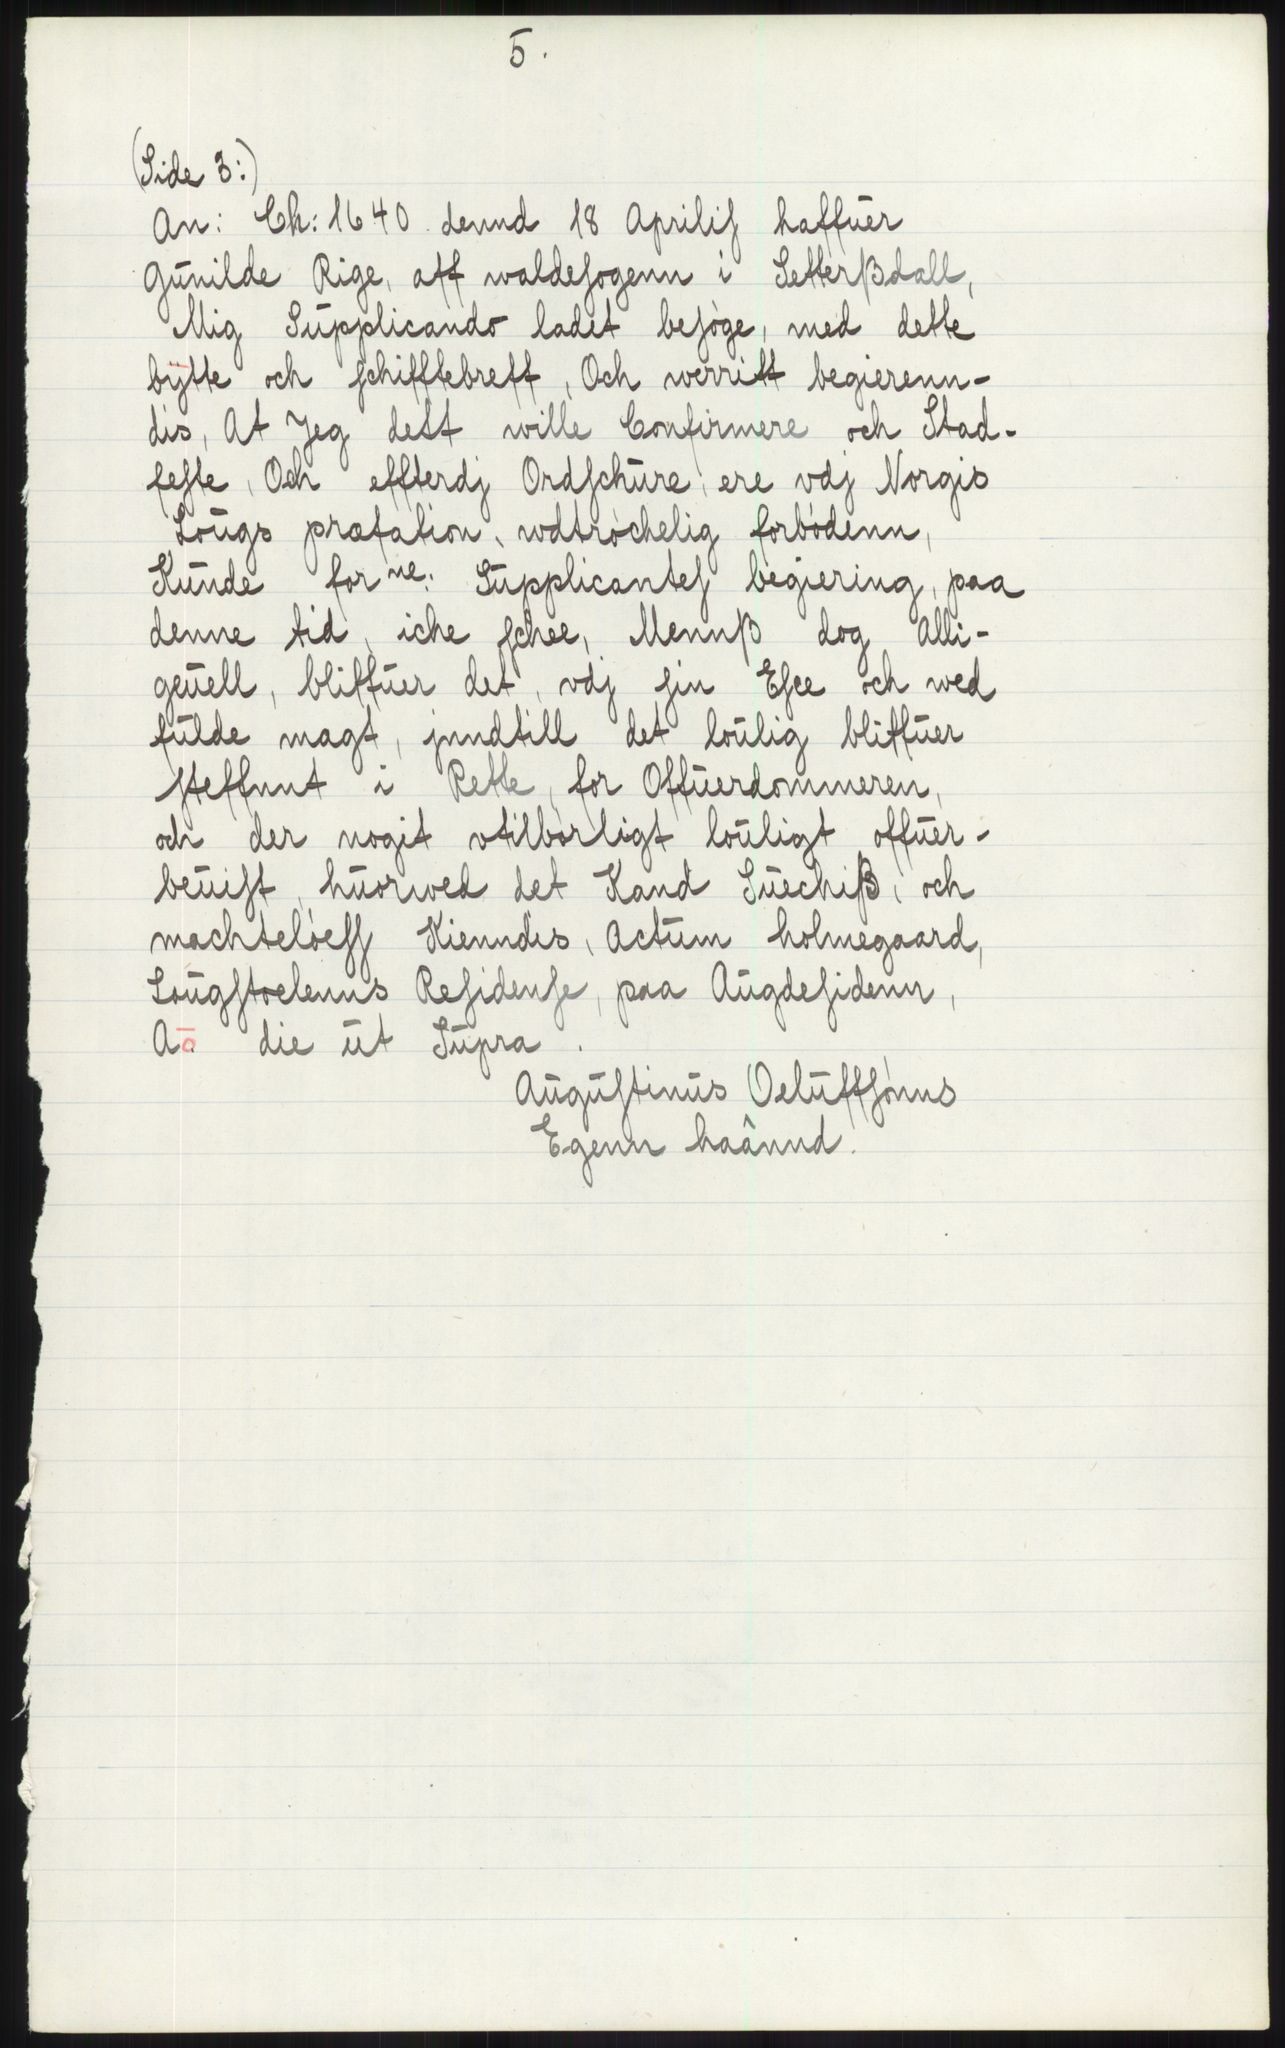 5.
(Side 3:)
An: Ch: 1640 dennd 18 Aprilis haffuer
Gunilde Rige, aff waldesogenn i Setterßdall,
Mig Supplicando ladet besøge, med dette
bÿtte och schifftebreff, Och werritt begierenn-
dis, At Jeg dett wille Confirmere och Stad-
feste, Och effterdj Ordschure, ere vdj Norgis
Lougs præfation, wdtrøchelig forbódenn,
Kunde forne: Supplicantes begiering, paa
denne tid, iche schee, Mennß dog Alli-
geuell, bliffuer det, vdj sin Esce och wed
fulde magt, jnndtill det loulig bliffuer
steffnnt i Rette, for Offuerdommeren,
och der nogit vtilbørligt louligt offuer-
beuist, huorwed det Kand Suechiß, och
machteløess Kienndis, Actum holmegaard,
Lougstoelenns Residense, paa Augdesidenn,
Ao. die ut Supra.
Augustinus Oeluffsønns
Egenn haânnd.